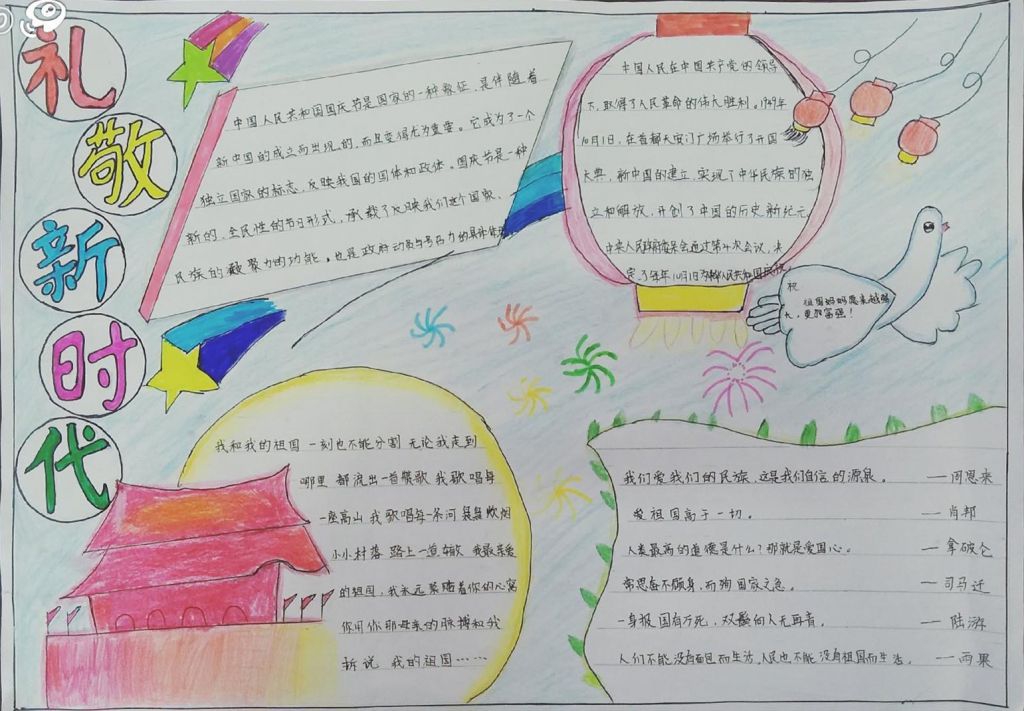 礼
敬
新
时
代
中国人民共和国国庆节是国家的一种象征,是伴随着
新中国的成立而出现的,而且变得尤为重要。它成为了一个
独立国家的标志,反映我国的国体和政体。国庆节是一种
新的、全民性的节日形式,承载了反映我们这个国家、
民族的凝聚力的功能。也是政府动员与号召力的具体
中国人民在中国共产党的领导
下,取得了人民革命的伟大胜利。1949年
10月1日,在首都天安门广场举行了开国
大典,新中国的建立,实现了中华民族的独
立和解放,开创了中国的历史新纪元。
中央人民政府委员会通过第四次会议,决
定了每年10月1日为中华人民共和国国庆
祝
祖国妈妈愈来越强
大,更加富强!
我和我的祖国 一刻也不能分割 无论我走到
哪里 都流出一首赞歌 我歌唱每
一座高山 我歌唱每一条河 袅袅炊烟
小小村落 路上一道辙 我最亲爱
的祖国,我永远紧随着你的心窝
你用你那母亲的脉搏和我
诉说 我的祖国……
我们爱我们的民族,这是我们自信的源泉。 —周恩来
爱祖国高于一切。 —肖邦
人类最高的道德是什么?那就是爱国心。 —拿破仑
常思奋不顾身,而殉国家之急。 —司马迁
一身报国有万死,双鬓向人无再青。 —陆游
人们不能没有面包而生活,人民也不能没有祖国而生活。 —雨果